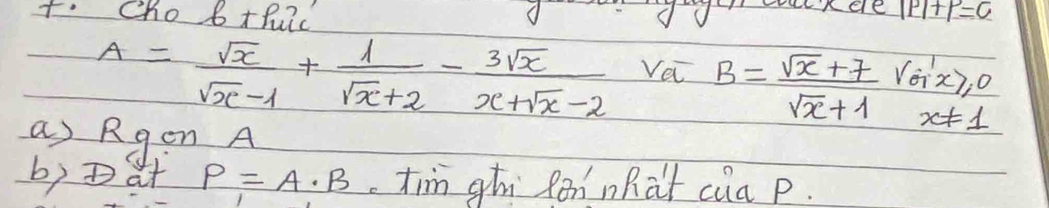 7. Cho b thức
|P|+P=0
A = \frac{\sqrt{x}}{\sqrt{x}-1} + \frac{1}{\sqrt{x}+2} - \frac{3\sqrt{x}}{x+\sqrt{x}-2} Và B = \frac{\sqrt{x}+7}{\sqrt{x}+1} Với x ≥ 0 x ≠ 1
a) Rgọn A
b) Đặt P = A.B. tìm gtri lớn nhất của P.